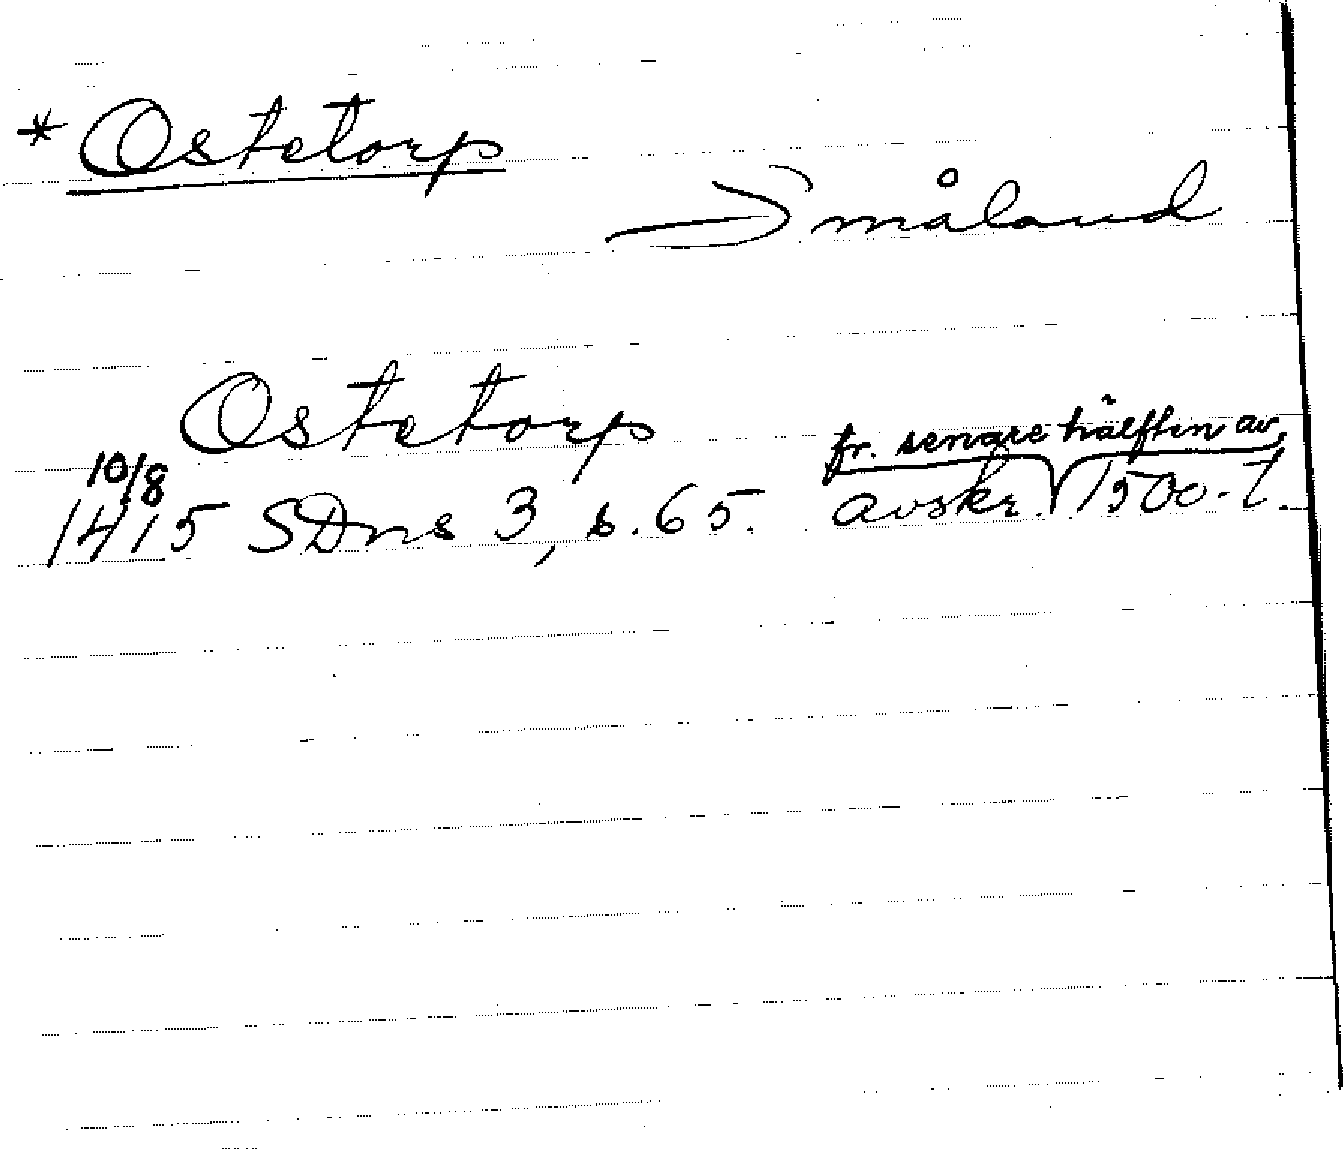 * Ostetorp
Småland
Ostetorp
fr. senare hälften av
10/8
1415 SDns 3, s. 65. avskr. 1500-t.